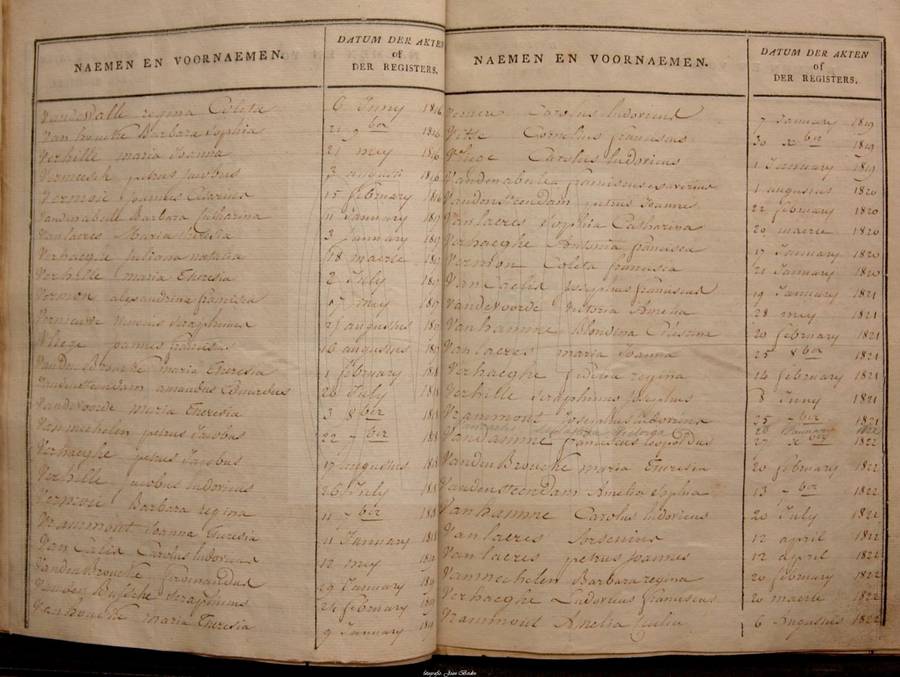 NAEMEN EN VOORNAEMEN. DATUM DER AKTEN of DER REGISTERS.
Vandewalle regina Coleta 6 Juny 1816
Van houcke Barbara Sophia 21 9ber 1816
Verhille maria Joanna 21 mey 1816
Vermeesch petrus Jacobus 3 augusti 1816
Joannes 15 february
Vandenabeele Barbara Catharina 11 January 1817
Vanlaeres Maria theresia 3 January 1817
Verhaeghe Juliana natalia 18 maerte
Verhille maria Theresia 2 July
Vermon alexandrina francisca 17 mey 1817
seraphinus 21 augustus
Vliege Joannes franciscus 16 augustus
Vanden Broucke maria Theresia 1 february 1818
Vandensteendam amandus Eduardus 26 July 1818
Vandevoorde maria Theresia 3 8ber 1818
Vanmechelen petrus Jacobus 22 7ber 1818
Verhaeghe petrus Jacobus 17 augustus
Verhille Jacobus ludovicus 26 July
Barbara regina 11 7ber 1818
Vrammout Joanna Theresia 11 January
Van Calis Carolus ludovicus 12 mey
Vanden Broucke ferdinandus 29 January
Vanden Bussche seraphinus 24 february
maria Theresia 9 January
NAEMEN EN VOORNAEMEN. DATUM DER AKTEN of DER REGISTERS.
Carolus ludovicus 7 January 1819
Cornelius franciscus 30 xber 1819
Vliege Carolus ludovicus 1 January 1819
Vandenabeele franciscus xaverius 1 augustus 1820
Vandensteendam petrus Joannes 22 february 1820
Vanlaeres Sophia Catharina 29 maerte 1820
Verhaeghe Antonia francisca 17 January 1820
Vermon Coleta francisca 21 January 1820
Van Calis Josephus franciscus 19 January 1821
Vandevoorde Victoria Amelia 28 mey 1821
Vanhamme Blondina 20 february 1821
Van laeres maria Joanna 25 8ber 1821
Verhaeghe regina 14 february 1821
Verhille Seraphinus 8 Juny 1821
Vrammout Josephus 25 7ber 1821
28 January
Vandamme franciscus leopoldus 27 xber 1822
Vanden Broucke maria Theresia 20 february 1822
Vandensteendam Amelia Sophia 13 7ber 1822
Vanhamme Carolus ludovicus 20 July 1821
Van laeres 12 april 1822
Van laeres petrus Joannes 12 april 1822
Vanmechelen Barbara regina 20 february 1822
Verhaeghe Ludovicus franciscus 20 maerte 1822
Vrammout Amelia 6 Augustus 1822